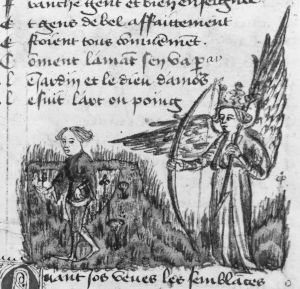 franche gent et bien enseignie
Et gens de bel affaittement
Estoient tous communement.
Coment lamant sen va par
le Jardin et le dieu damors
le suit lart ou poing
Quant jos veues les semblances